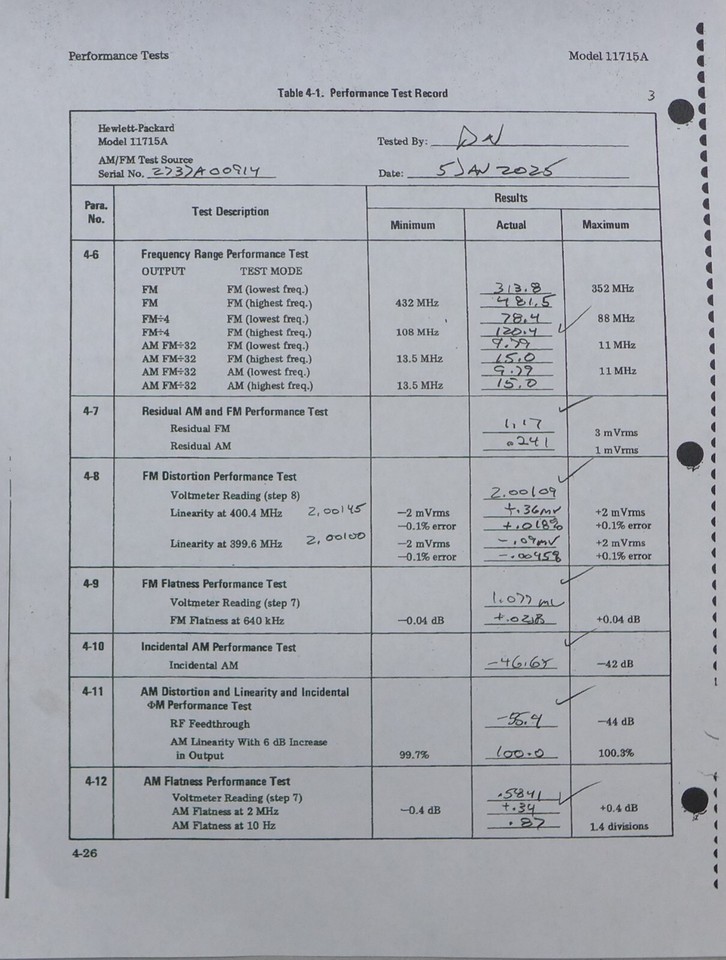 Performance Tests Model 11715A
Table 4-1. Performance Test Record 3
Hewlett-Packard
Model 11715A Tested By: DN
AM/FM Test Source
Serial No. 2737A00914 Date: 5 JAN 2025
Para. No. Test Description Results
Minimum Actual Maximum
4-6 Frequency Range Performance Test
OUTPUT TEST MODE
FM FM (lowest freq.) 313.8 352 MHz
FM FM (highest freq.) 432 MHz 481.5
FM÷4 FM (lowest freq.) 78.4 88 MHz
FM÷4 FM (highest freq.) 108 MHz 120.4 ✓
AM FM÷32 FM (lowest freq.) 9.79 11 MHz
AM FM÷32 FM (highest freq.) 13.5 MHz 15.0
AM FM÷32 AM (lowest freq.) 9.79 11 MHz
AM FM÷32 AM (highest freq.) 13.5 MHz 15.0
4-7 Residual AM and FM Performance Test ✓
Residual FM 1.17 3 mVrms
Residual AM .241 1 mVrms
4-8 FM Distortion Performance Test ✓
Voltmeter Reading (step 8) 2.00109
Linearity at 400.4 MHz 2.00145 −2 mVrms +.36mV +2 mVrms
−0.1% error +.018% +0.1% error
Linearity at 399.6 MHz 2.00100 −2 mVrms −.09mV +2 mVrms
−0.1% error −.0045% +0.1% error
4-9 FM Flatness Performance Test ✓
Voltmeter Reading (step 7) 1.077
FM Flatness at 640 kHz −0.04 dB +0.04 dB
4-10 Incidental AM Performance Test ✓
Incidental AM −46.65 −42 dB
4-11 AM Distortion and Linearity and Incidental
ΦM Performance Test ✓
RF Feedthrough −44 dB
AM Linearity With 6 dB Increase
in Output 99.7% 100.0 100.3%
4-12 AM Flatness Performance Test
Voltmeter Reading (step 7) .5841 ✓
AM Flatness at 2 MHz −0.4 dB +.34 +0.4 dB
AM Flatness at 10 Hz .87 1.4 divisions
4-26